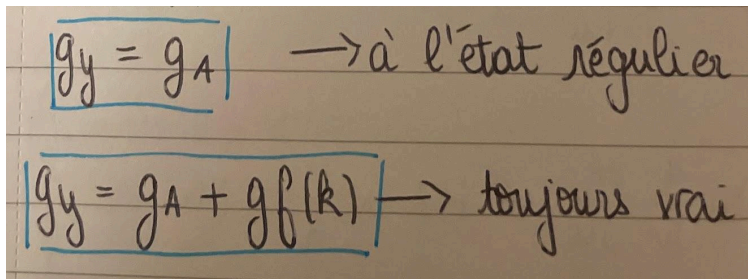 gy = gA → à l'état régulier
gy = gA + gf(k) → toujours vrai